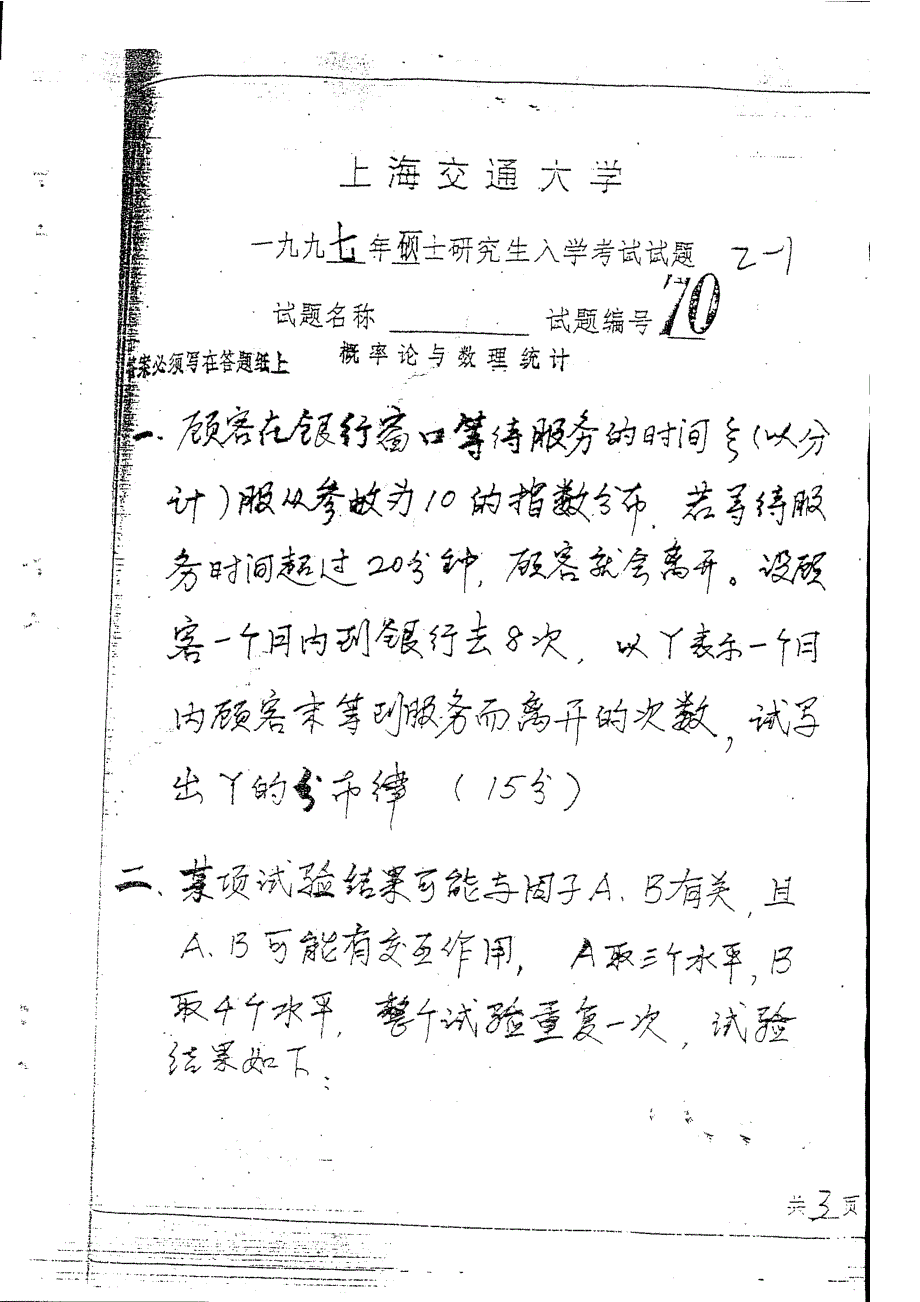 上海交通大学
一九九七年硕士研究生入学考试试题 2-1
试题名称 试题编号 70
答案必须写在答题纸上 概率论与数理统计
一、顾客在银行窗口等待服务的时间ξ(以分
计)服从参数为10的指数分布,若等待服
务时间超过20分钟,顾客就会离开。设顾
客一个月内到银行去8次,以Y表示一个月
内顾客未等到服务而离开的次数,试写
出Y的分布律 (15分)
二、某项试验结果可能与因子A、B有关,且
A、B可能有交互作用, A取三个水平,B
取4个水平,整个试验重复一次,试验
结果如下:
共3页